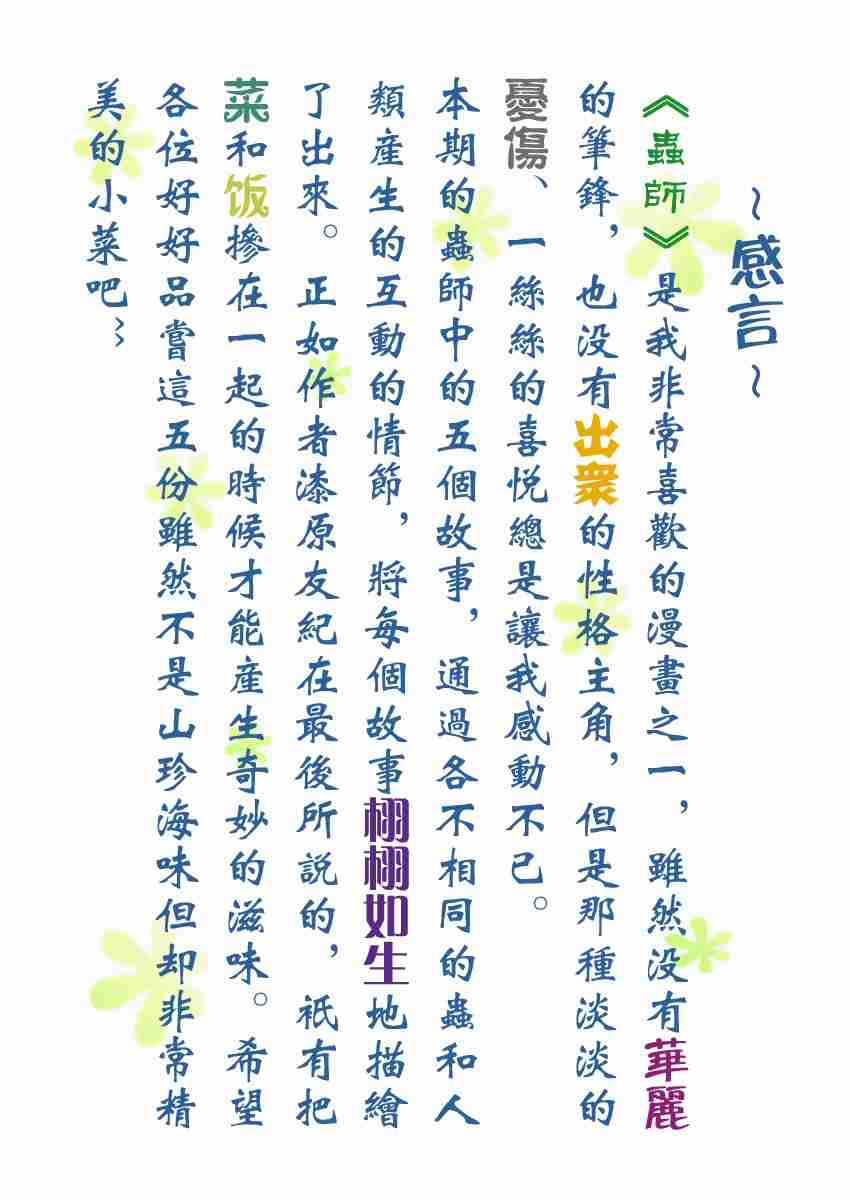 ～感言～
《蟲師》是我非常喜歡的漫畫之一，雖然没有華麗
的筆鋒，也没有出衆的性格主角，但是那種淡淡的
憂傷、一絲絲的喜悦總是讓我感動不已。
本期的蟲師中的五個故事，通過各不相同的蟲和人
類産生的互動的情節，將每個故事栩栩如生地描繪
了出來。正如作者漆原友紀在最後所説的，衹有把
菜和饭摻在一起的時候才能産生奇妙的滋味。希望
各位好好品嘗這五份雖然不是山珍海味但却非常精
美的小菜吧～